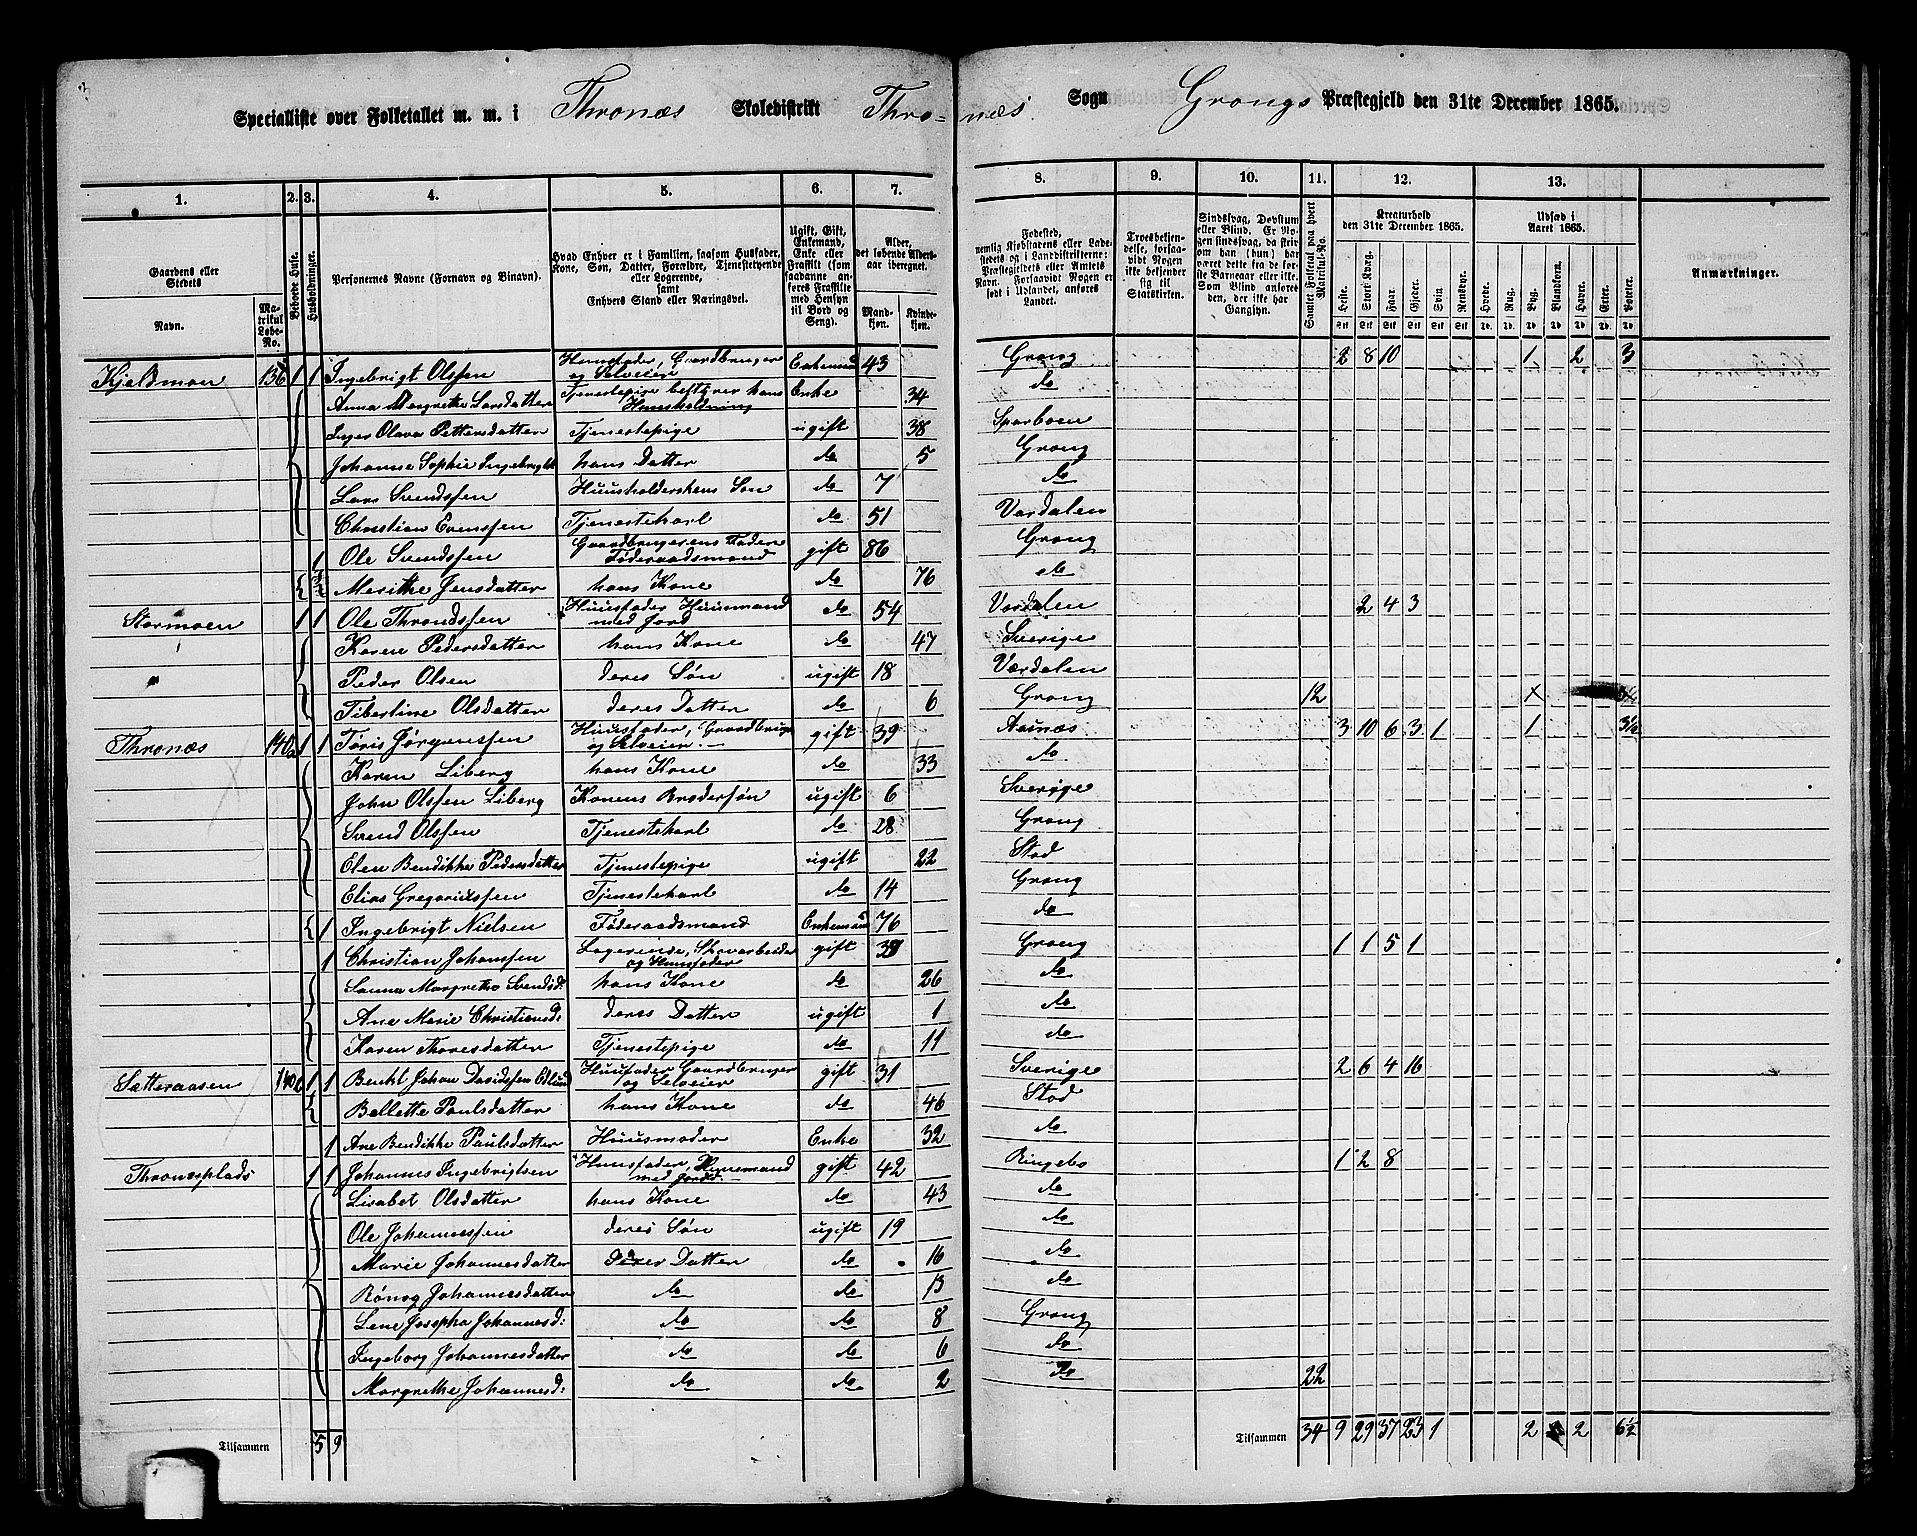 Specialliste over Folketallet m. m. i Thronæs Skoledistrikt Thronæs Sogn Grongs Præstegjeld den 31te December 1865.
1. 2. 3. 4. 5. 6. 7. 8. 9. 10. 11. 12. 13.
Gaardens eller Stedets Navn. Matrikul Løbe-No. Beboede Huse. Husholdninger. Personernes Navne (Fornavn og Binavn). Hvad Enhver er i Familien, saasom Husfader, Kone, Søn, Datter, Forældre, Tjenestetyende eller Logerende, samt Enhvers Stand eller Næringsvei. Ugift, Gift, Enkemand, Enke eller Fraskilt (som saadanne anføres Fraskilte med Hensyn til Bord og Seng). Alder, det løbende Aldersaar iberegnet. Mandkjøn. Kvindekjøn. Fødested, nemlig Kjøbstadens eller Ladestedets og i Landdistrikterne: Præstegjeldets eller Amtets Navn. Forsaavidt Nogen er født i Udlandet, anføres Landet. Troesbekjendelse, forsaavidt Nogen ikke bekjender sig til Statskirken. Sindssvag, Døvstum eller Blind. Er Nogen sindssvag, da skriv om han (hun) har været dette fra de første Barneaar eller ikke. Som Blind anføres den, der ikke har Gangsyn. Samlet Folketal paa hvert Matrikul-No. Kreaturhold den 31te December 1865. Heste. Stort Kvæg. Faar. Gjeder. Svin. Rensdyr. Udsæd i Aaret 1865. Hvede. Rug. Byg. Blandkorn. Havre. Erter. Poteter. Anmærkninger.
Kjeldmoen 136 1 1 Ingebrigt Olssen Huusfader, Gaardbruger og Selveier Enkemand 43 Grong 2 8 10 1 2 3
Anna Margrethe Larsdatter Tjenestepige bestyrer hans Huusholdning Enke 34 do
Inger Olava Pettersdatter Tjenestepige ugift 38 Sparboen
Johanna Sophie Ingebrigtd hans Datter do 5 Grong
Lars Svendssen Huusholderskens Søn do 7 do
Christian Evenssen Tjenestekarl do 51 Værdalen
1 Ole Svendssen Gaardbrugerens Fader Føderaadsmand gift 86 Grong
Merithe Jensdatter hans Kone do 76 do
Stormoen 1 1 Ole Throndssen Huusfader Huusmand med Jord do 54 Værdalen 2 4 3
Karen Pedersdatter hans Kone do 47 Sverige
Peder Olsen deres Søn ugift 18 Værdalen
Tibertine Olsdatter deres Datter do 6 Grong 12
Thronæs 140a 1 1 Tøris Jørgenssen Huusfader, Gaardbruger og Selveier gift 39 Aasnæs 3 10 6 3 1 1 3½
Karen Liberg hans Kone do 33 do
John Olssen Liberg Konens Brodersøn ugift 6 Sverige
Svend Olssen Tjenestekarl do 28 Grong
Elen Bendikke Pedersdatter Tjenestepige ugift 22 Stod
Elias Gregoriussen Tjenestekarl do 14 Grong
1 Ingebrigt Nielsen Føderaadsmand Enkemand 76 do
1 Christian Johanssen Logerende, Skovarbeider og Huusfader gift Grong 1 1 5 1
Sanna Margretha Svendsd: hans Kone do 26 do
Ane Marie Christiansd: deres Datter ugift 1 do
Karen Thoresdatter Tjenestepige do 11 do
Sætteraasen 140c 1 1 Benkt Johan Davidssen Edlund Huusfader Gaardbruger og Selveier gift 31 Sverige 2 6 4 16
Bellette Paulsdatter hans Kone do 46 Stod
1 Ane Bendikke Paulsdatter Huusmoder Enke 32 do
Thronesplads 1 1 Johannes Ingebrigtsen Huusfader, Huusmand med Jord gift 42 Ringebo 1 2 8
Lisabet Olsdatter hans Kone do 43 do
Ole Johannessen deres Søn ugift 19 do
Marie Johannesdatter deres Datter do 16 do
Rønog Johannesdatter do do 13 do
Lene Josepha Johannesd: do do 8 Grong
Ingeborg Johannesdatter do do 6 do
Margrethe Johannesd: do do 2 do 22
Tilsammen 5 9 Tilsammen 34 9 29 37 23 1 2 2 6½